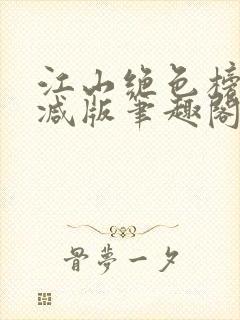 江山绝色榜
减版笔趣阁
骨梦一夕